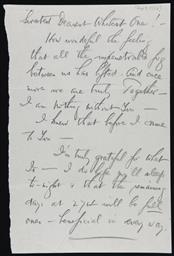 Sweetest Dearest Whitest One! -
How wonderful the feeling
that all the impenetrable fog
between us has lifted. And once
more we are truly Together -
I am Nothing without You -
I knew that before I came
to You -
I'm truly grateful for what
Is - I do hope you'll sleep
to-night & that the remaining
days at will be full
ones - beneficial in every way